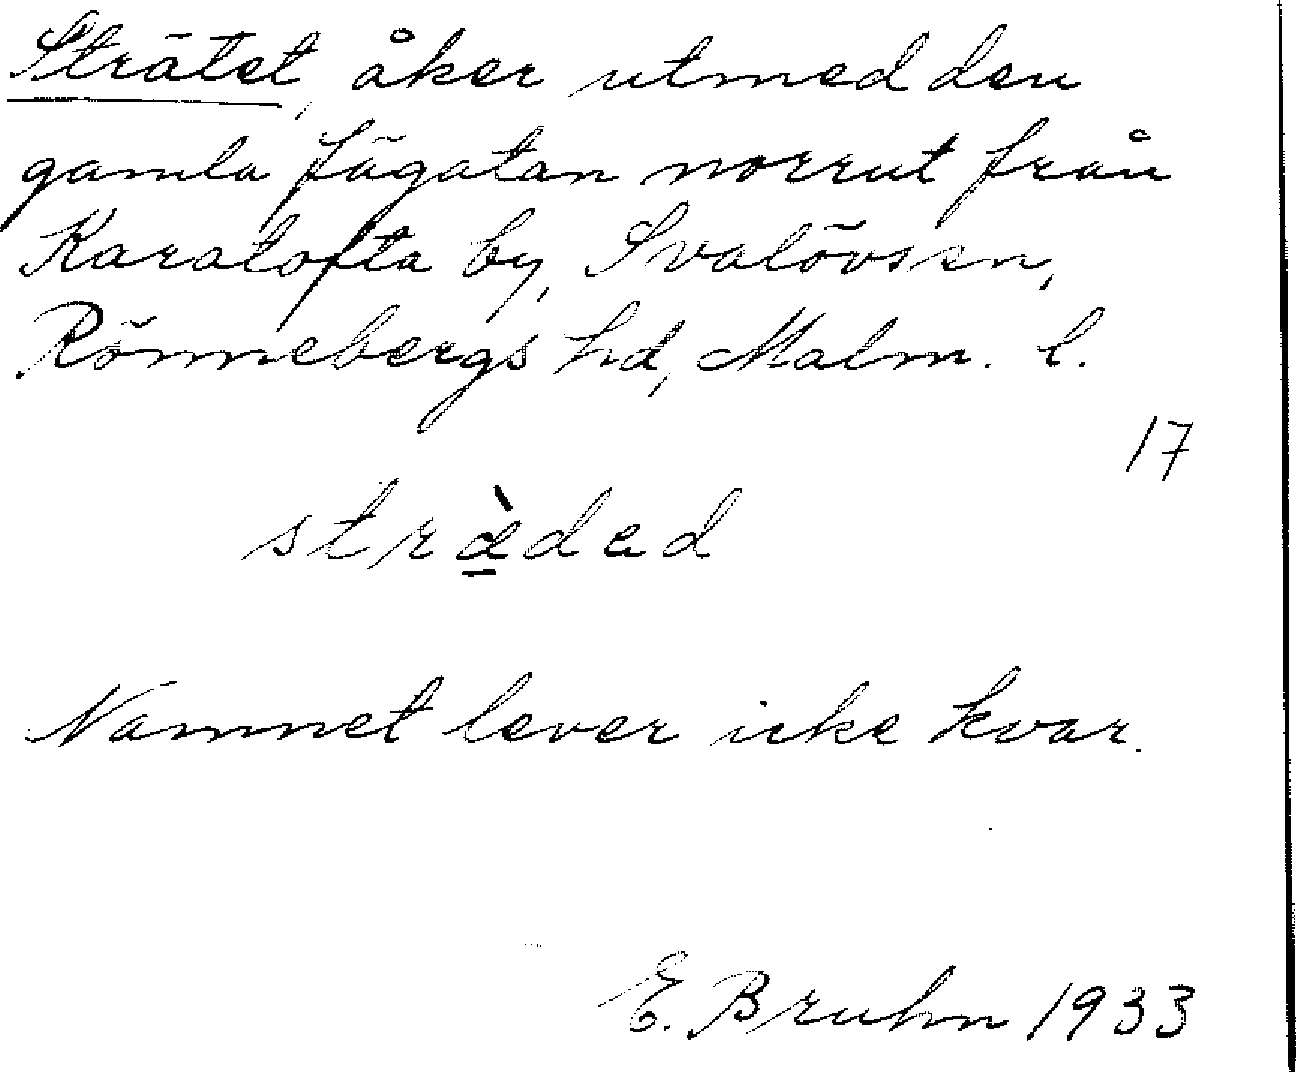 Strätet, åker utmed den
gamla fägatan norrut från
Karatofta by, Svalövs sn,
Rönnebergs hd, Malm. l.
17
stræ̀ded
Namnet lever icke kvar.
E. Bruhn 1933